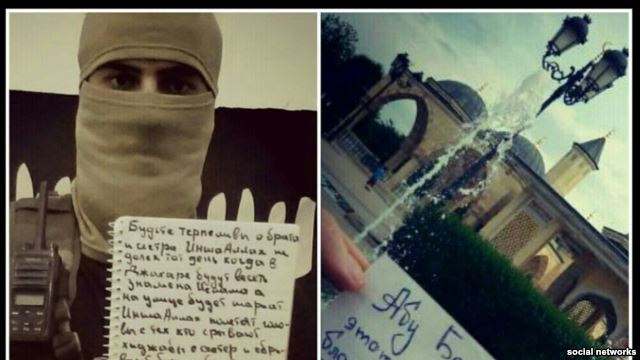 Будьте терпеливы о братя
и сестра ИншаАллах не
далек тот день когда в
Джахаре будут висеть
знамена Ислама а
на улице будет шариат
ИншаАллах полетят голо-
вы с тех кто срывает
хиджабы с сестер и
Абу
social networks